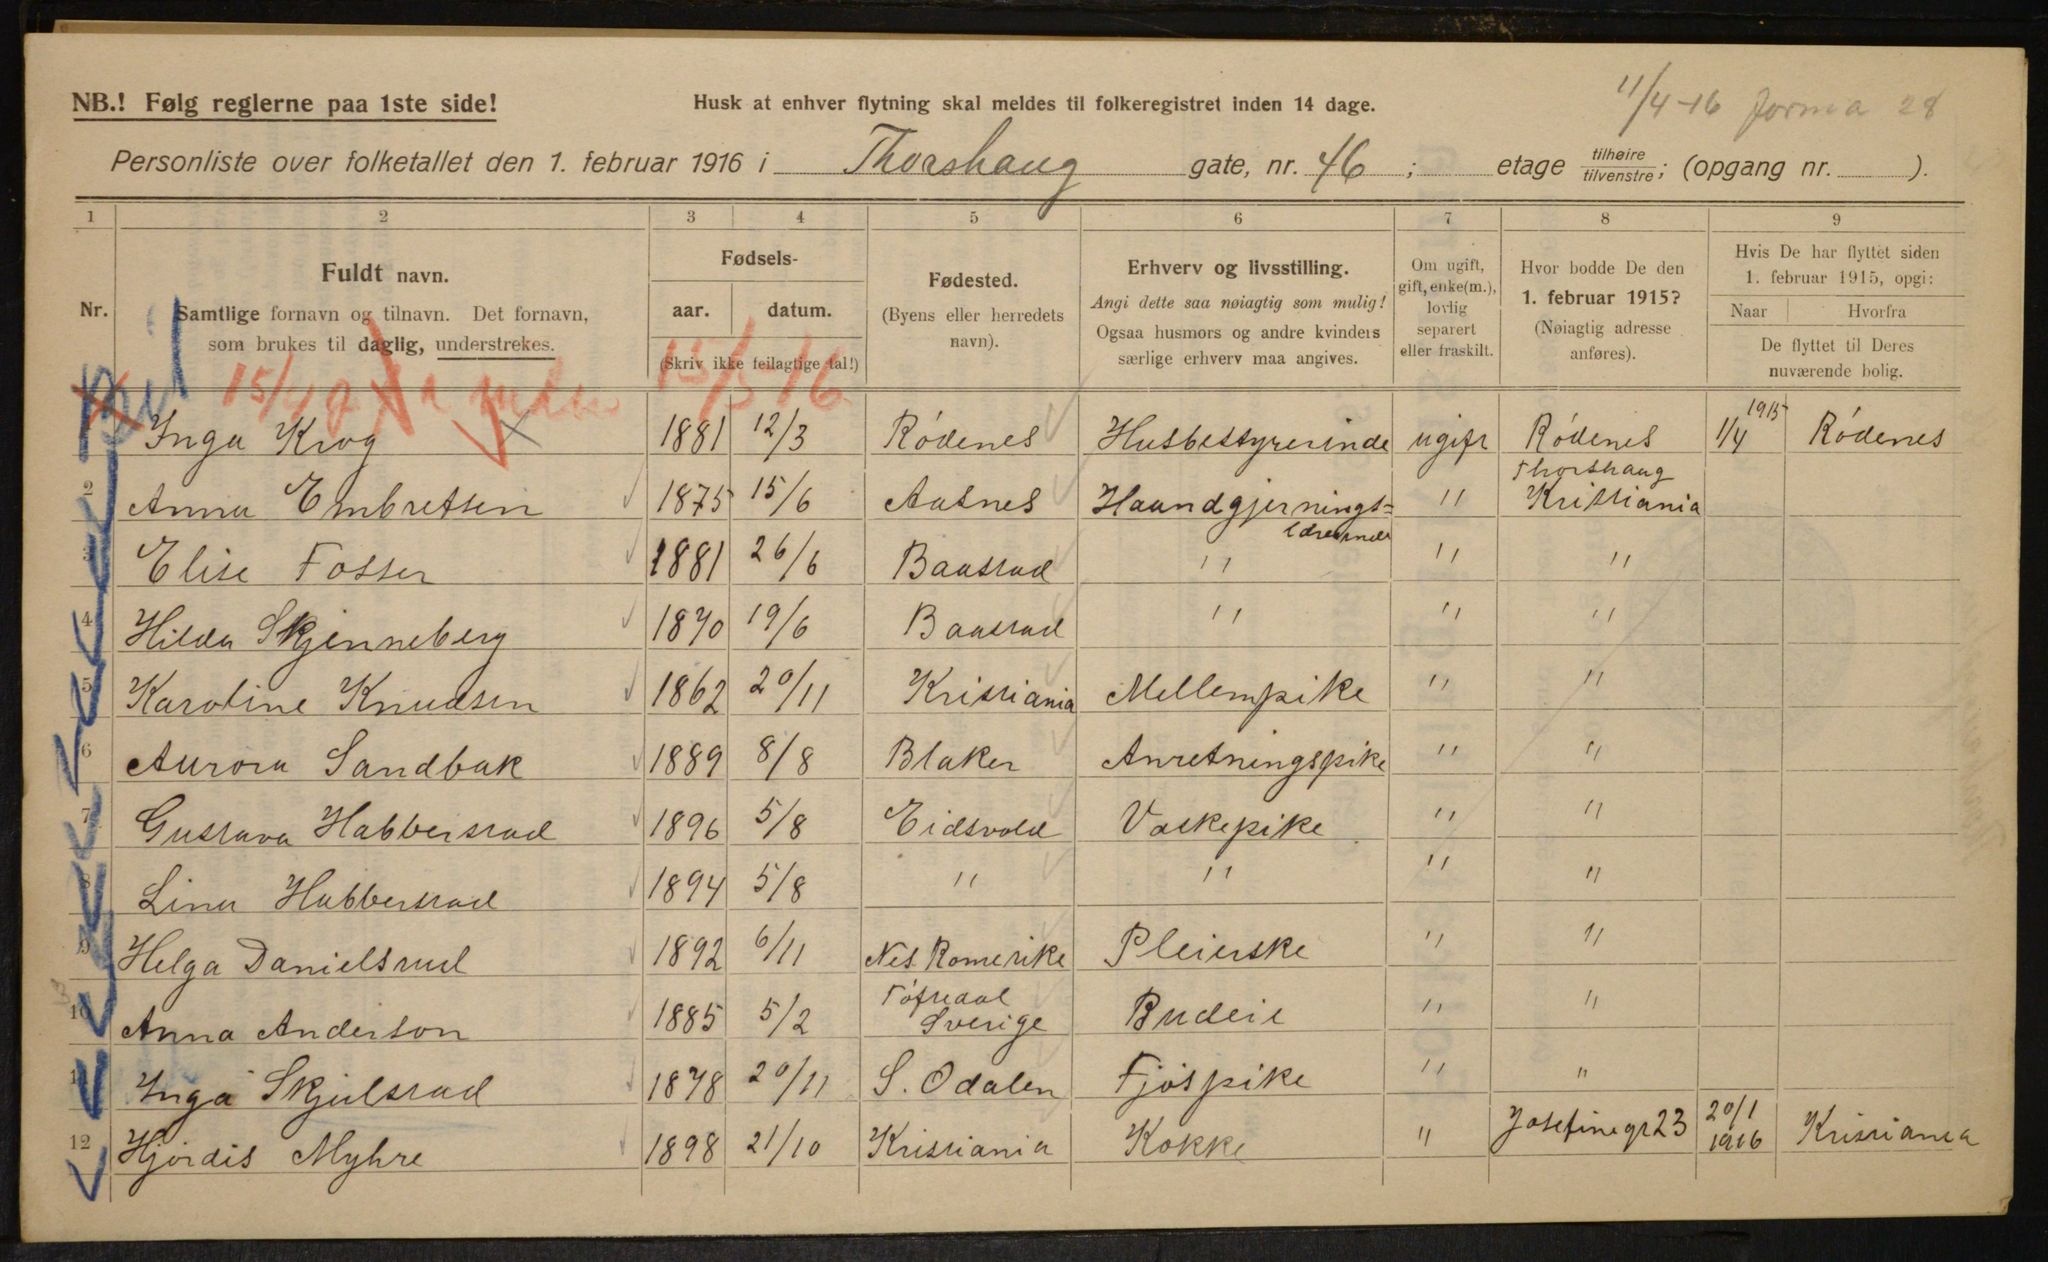 NB.! Følg reglerne paa 1ste side!
Husk at enhver flytning skal meldes til folkeregistret inden 14 dage.
11/4-16
Personliste over folketallet den 1. februar 1916 i Thorshaug gate, nr. 46 ; etage tilhøire tilvenstre; (opgang nr. ).
1 2 3 4 5 6 7 8 9
Nr.
Fuldt navn.
Samtlige fornavn og tilnavn. Det fornavn,
som brukes til daglig, understrekes.
Fødsels-
aar. datum.
(Skriv ikke feilagtige tal!)
Fødested.
(Byens eller herredets
navn).
Erhverv og livsstilling.
Angi dette saa nøiagtig som mulig!
Ogsaa husmors og andre kvinders
særlige erhverv maa angives.
Om ugift,
gift, enke(m.),
lovlig
separert
eller fraskilt.
Hvor bodde De den
1. februar 1915?
(Nøiagtig adresse
anføres).
Hvis De har flyttet siden
1. februar 1915, opgi:
Naar Hvorfra
De flyttet til Deres
nuværende bolig.
15/5 16
Inga Krog 1881 12/3 Rödenes Husbestyrerinde ugift Rödenes 1/4 1915 Rödenes
2 Anna Embretsen 1875 15/6 Aasnes Haandgjernings= lærerinde " Thorshaug Kristiania
3 Elise Fosser 1881 26/6 Baastad " " "
4 Hilda Skjenneberg 1870 19/6 Baastad " " "
5 Karoline Knudsen 1862 20/11 Kristiania Mellempike " "
6 Aurora Sandbak 1889 8/8 Blaker Anretningspike " "
7 Gustava Habberstad 1896 5/8 Eidsvold Vaskepike " "
8 Lina Habberstad 1894 5/8 " " " "
9 Helga Danielsrud 1892 6/11 Nes Romerike Pleierske " "
10 Anna Anderson 1885 5/2 Töftedal Sverige Budeie " "
11 Inga Skjulstad 1878 20/11 S. Odalen Fjöspike " "
12 Hjördis Myhre 1898 21/10 Kristiania Kokke " Josefinegt 23 20/1 1916 Kristiania